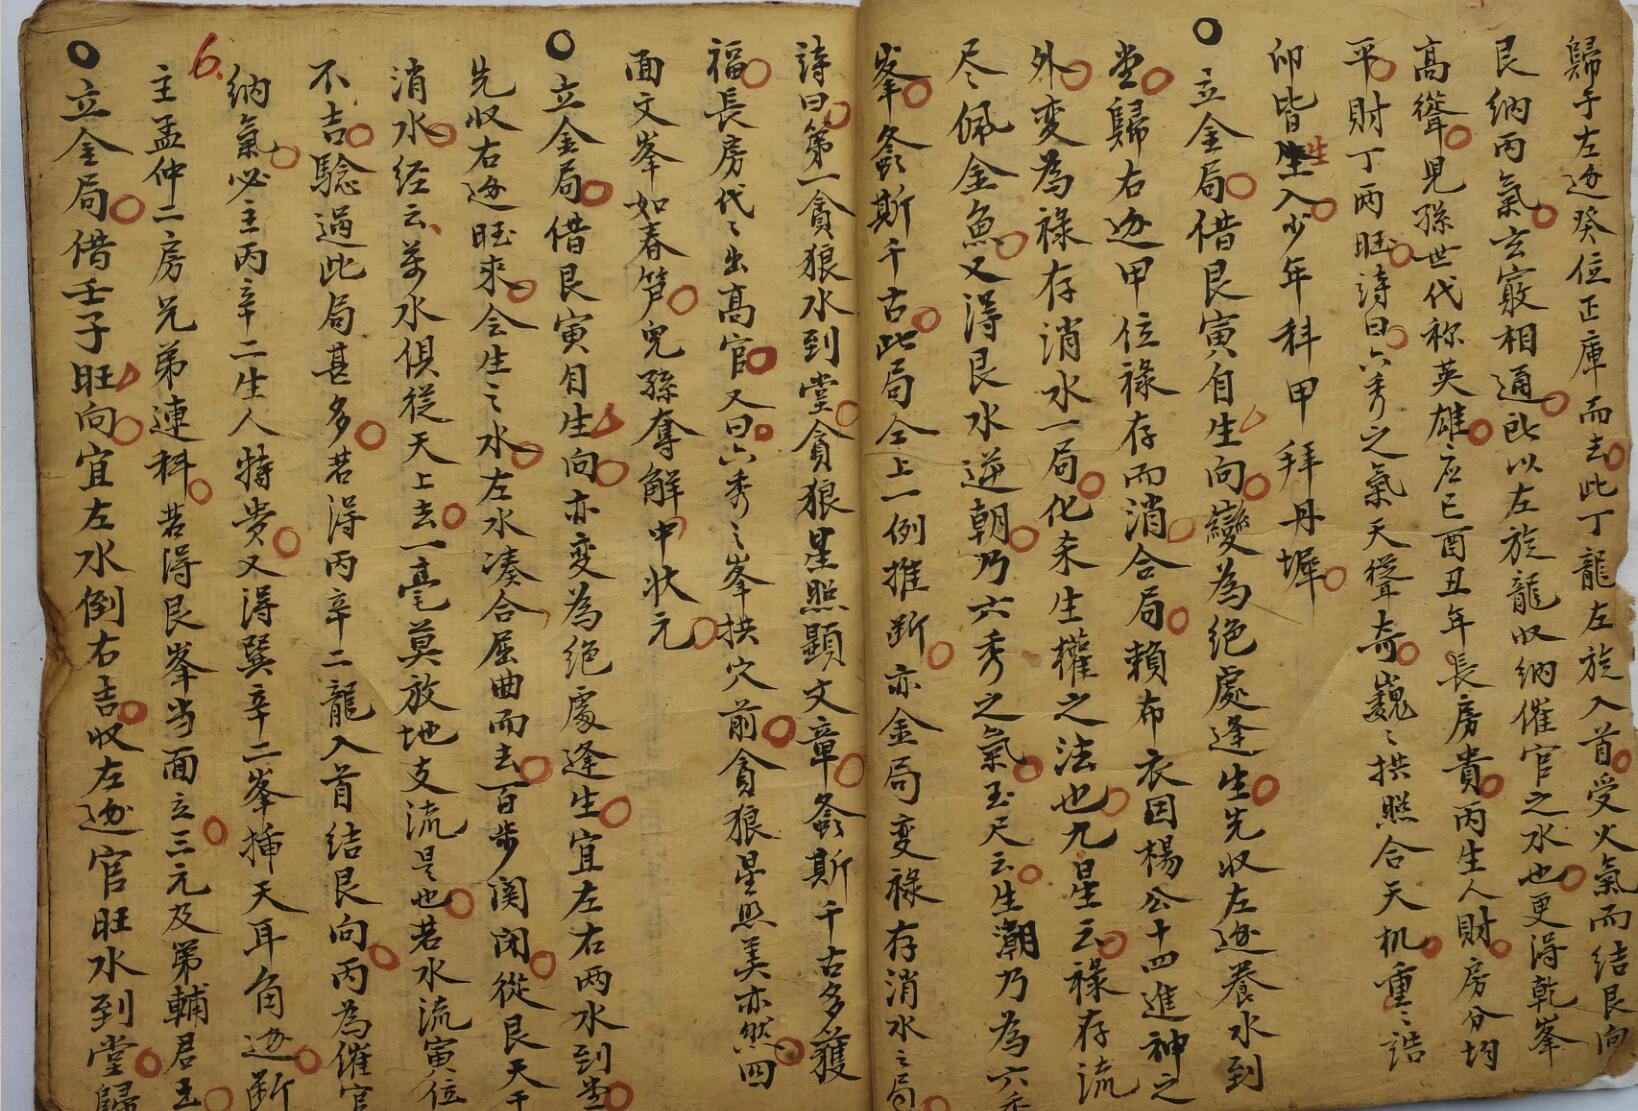 歸于左边癸位正庫而去此丁龍左旋入首受火氣而结艮向
艮納丙氣玄竅相通此以左旋龍收納催官之水也更得乾峯
高聳見孫世代称英雄应巳酉丑年長房貴丙生人財房分均
平財丁两旺詩曰六秀之氣天聳奇巍〻拱照合天机重〻誥
卯皆生入少年科甲拜丹墀
生
立金局借艮寅自生向變為绝處逢生先収左边養水到
堂歸右边甲位禄存而消合局賴布衣因楊公十四進神之
外变為禄存消水一局化杀生權之法也九星云禄存流
尽佩金魚又得艮水逆朝乃六秀之氣玉尺云生潮乃為六秀
峯螽斯千古此局仝上一例推断亦金局变禄存消水之局
詩曰第一貪狼水到堂貪狼星照顯文章螽斯千古多獲
福長房代〻出高官又曰六秀之峯拱穴前貪狼星照美亦然四
面文峯如春筍兒孫奪解中状元
立金局借艮寅自生向亦变為绝處逢生宜左右两水到堂
先収右边旺來会生之水左水凑合屈曲而去百步関闭從艮天干
消水经云萬水俱從天上去一毫莫放地支流是也若水流寅位
不吉騐過此局甚多若得丙辛二龍入首结艮向丙為催官
納氣必主丙辛二生人特贵又得巽辛二峯插天耳角边断
6.
主孟仲二房兄弟連科若得艮峯当面立三元及第輔君王
立金局借壬子旺向宜左水倒右吉収左边官旺水到堂歸